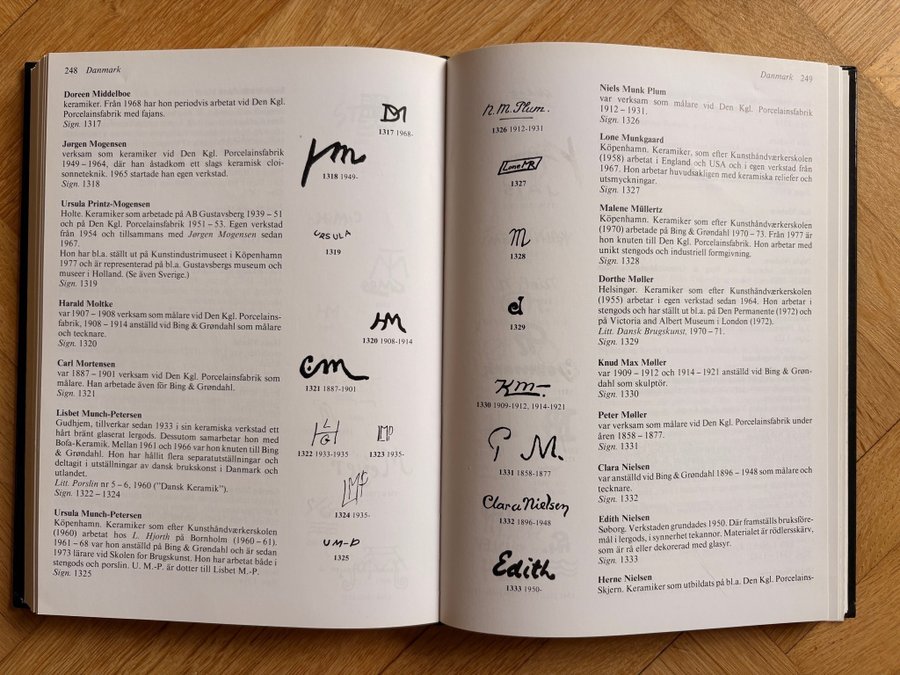 248 Danmark
Doreen Middelboe
keramiker. Från 1968 har hon periodvis arbetat vid Den Kgl.
Porcelainsfabrik med fajans.
Sign. 1317
Jørgen Mogensen
verksam som keramiker vid Den Kgl. Porcelainsfabrik
1949 – 1964, där han åstadkom ett slags keramisk cloi-
sonneteknik. 1965 startade han egen verkstad.
Sign. 1318
Ursula Printz-Mogensen
Holte. Keramiker som arbetade på AB Gustavsberg 1939 – 51
och på Den Kgl. Porcelainsfabrik 1951 – 53. Egen verkstad
från 1954 och tillsammans med Jørgen Mogensen sedan
1967.
Hon har bl.a. ställt ut på Kunstindustrimuseet i Köpenhamn
1977 och är representerad på bl.a. Gustavsbergs museum och
museer i Holland. (Se även Sverige.)
Sign. 1319
Harald Moltke
var 1907 – 1908 verksam som målare vid Den Kgl. Porcelains-
fabrik, 1908 – 1914 anställd vid Bing & Grøndahl som målare
och tecknare.
Sign. 1320
Carl Mortensen
var 1887 – 1901 verksam vid Den Kgl. Porcelainsfabrik som
målare. Han arbetade även för Bing & Grøndahl.
Sign. 1321
Lisbet Munch-Petersen
Gudhjem, tillverkar sedan 1933 i sin keramiska verkstad ett
hårt bränt glaserat lergods. Dessutom samarbetar hon med
Bofa-Keramik. Mellan 1961 och 1966 var hon knuten till Bing
& Grøndahl. Hon har hållit flera separatutställningar och
deltagit i utställningar av dansk brukskonst i Danmark och
utlandet.
Litt. Porslin nr 5 – 6, 1960 ("Dansk Keramik").
Sign. 1322 – 1324
Ursula Munch-Petersen
Köpenhamn. Keramiker som efter Kunsthåndværkerskolen
(1960) arbetat hos L. Hjorth på Bornholm (1960 – 61).
1961 – 68 var hon anställd på Bing & Grøndahl och är sedan
1973 lärare vid Skolen for Brugskunst. Hon har arbetat både i
stengods och porslin. U. M.-P. är dotter till Lisbet M.-P.
Sign. 1325
DM
1317 1968-
Jm
1318 1949-
URSULA
1319
HM
1320 1908-1914
cm
1321 1887-1901
1322 1933-1935
1323 1935-
LMP
1324 1935-
UM-P
1325
Danmark 249
N. M. Plum.
1326 1912-1931
Lone MR
1327
M
1328
1329
Km-
1330 1909-1912, 1914-1921
P M.
1331 1858-1877
Clara Nielsen
1332 1896-1948
Edith
1333 1950-
Niels Munk Plum
var verksam som målare vid Den Kgl. Porcelainsfabrik
1912 – 1931.
Sign. 1326
Lone Munkgaard
Köpenhamn. Keramiker, som efter Kunsthåndværkerskolen
(1958) arbetat i England och USA och i egen verkstad från
1967. Hon arbetar huvudsakligen med keramiska reliefer och
utsmyckningar.
Sign. 1327
Malene Müllertz
Köpenhamn. Keramiker som efter Kunsthåndværkerskolen
(1970) arbetade på Bing & Grøndahl 1970 – 73. Från 1977 är
hon knuten till Den Kgl. Porcelainsfabrik. Hon arbetar med
unikt stengods och industriell formgivning.
Sign. 1328
Dorthe Møller
Helsingør. Keramiker som efter Kunsthåndværkerskolen
(1955) arbetar i egen verkstad sedan 1964. Hon arbetar i
stengods och har ställt ut bl.a. på Den Permanente (1972) och
på Victoria and Albert Museum i London (1972).
Litt. Dansk Brugskunst. 1970 – 71.
Sign. 1329
Knud Max Møller
var 1909 – 1912 och 1914 – 1921 anställd vid Bing & Grøn-
dahl som skulptör.
Sign. 1330
Peter Møller
var verksam som målare vid Den Kgl. Porcelainsfabrik under
åren 1858 – 1877.
Sign. 1331
Clara Nielsen
var anställd vid Bing & Grøndahl 1896 – 1948 som målare och
tecknare.
Sign. 1332
Edith Nielsen
Søborg. Verkstaden grundades 1950. Där framställs bruksföre-
mål i lergods, i synnerhet tekannor. Materialet är rödlersskärv,
som är rå eller dekorerad med glasyr.
Sign. 1333
Herne Nielsen
Skjern. Keramiker som utbildats på bl.a. Den Kgl. Porcelains-